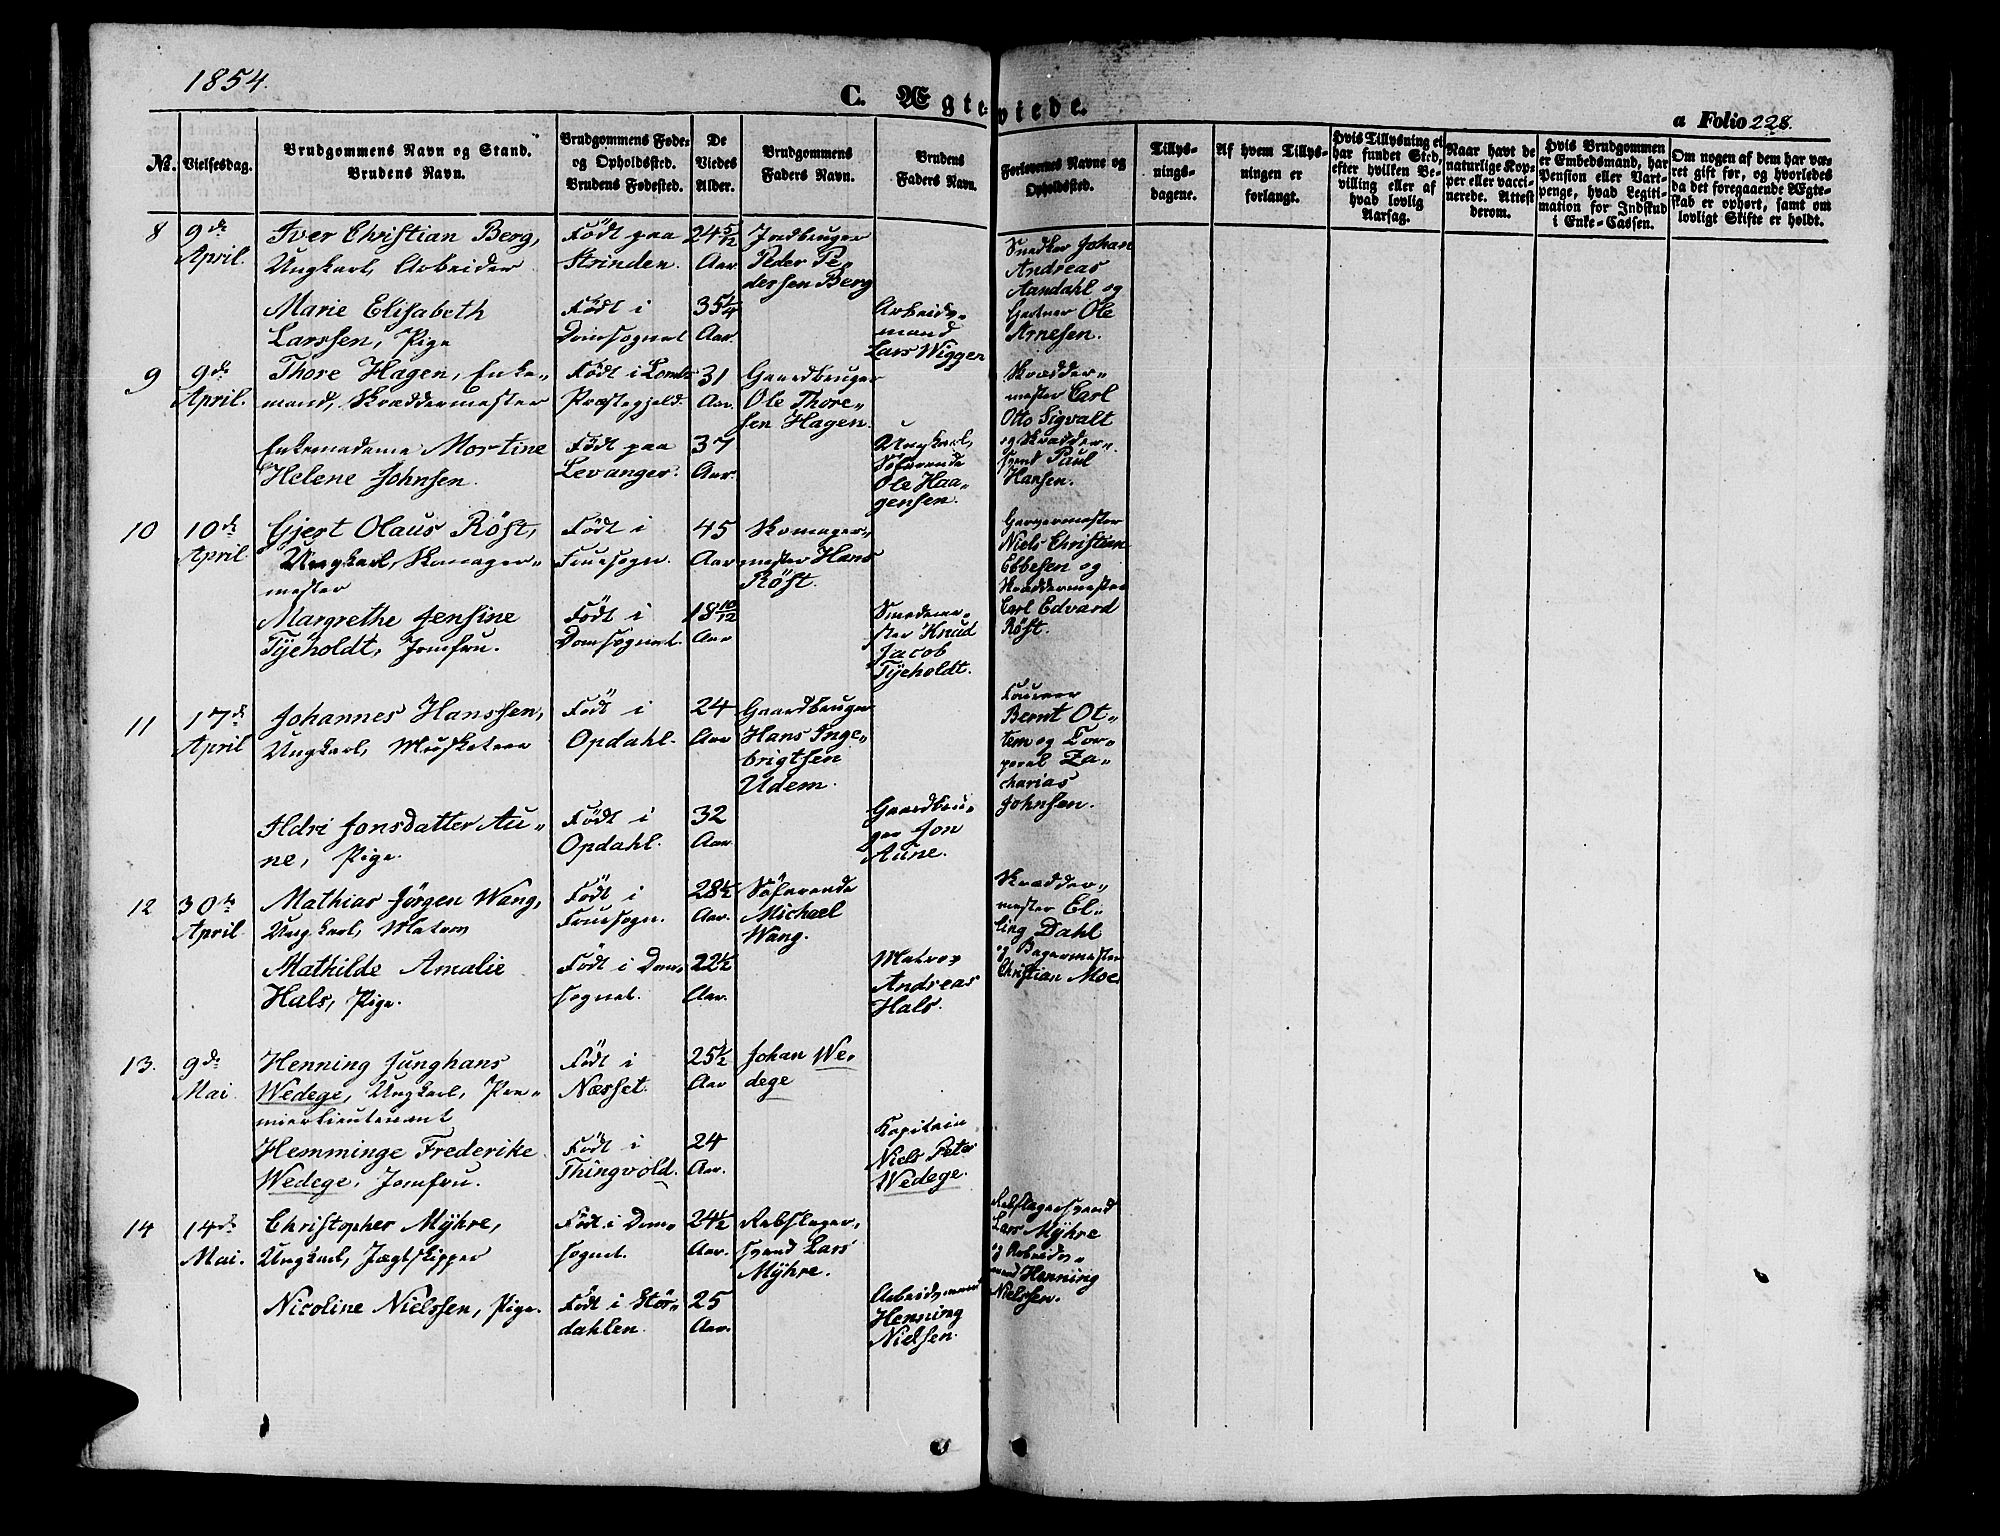 1854.
C. Ægteviede.
a Folio 228.
No. Vielsesdag. Brudgommens Navn og Stand. Brudens Navn. Brudgommens Føde- og Opholdssted. Brudens Fødested. De Viedes Alder. Brudgommens Faders Navn. Brudens Faders Navn. Forlovernes Navne og Opholdssted. Tillysningsdagene. Af hvem Tillysningen er forlangt. Hvis Tillysning ei har fundet Sted, efter hvilken Bevilling eller af hvad lovlig Aarsag. Naar havt de naturlige Kopper eller vaccinerede. Attest derom. Hvis Brudgommen er Embedsmand, har Pension eller Vartpenge, hvad Legitimation for Indskud i Enke-Cassen. Om nogen af dem har været gift før, og hvorledes da det foregaaende Ægteskab er ophørt, samt om lovligt Skifte er holdt.
8 9de April. Iver Christian Berg, Ungkarl, Arbeider Født paa Strinden. 24 5/12 Aar Jordbruger Peder Pedersen Berg Snedker Johan Andreas Aandahl og Gartner Ole Arnesen.
Marie Elisabeth Larssen, Pige Født i Domsognet 35 1/4 Aar. Arbeidsmand Lars Wiggen
9 9de April. Thore Hagen, Enkemand, Skræddermester Født i Loms Præstegjeld. 31 Aar. Gaardbruger Ole Thoresen Hagen. Skræddermester Carl Otto Sigvalt og Skræddersvend Paul Hansen.
Enkemadame Mortine Helene Johnsen. Født paa Levanger. 37 Aar. Ungkarl, Søfarende Ole Haagensen.
10 10de April Gjert Olaus Röst, Ungkarl, Skomagermester Født i Fruesogn. 45 Aar Skomagermester Hans Röst. Garvermester Niels Christian Ebbesen og Skræddermester Carl Edvard Röst.
Margrethe Jensine Tyeholdt, Jomfru. Født i Domsognet. 18 10/12 Aar Smedemester Knud Jacob Tyeholdt.
11 17de April Johannes Hanssen, Ungkarl, Musketeer Født i Opdahl. 24 Aar Gaardbruger Hans Ingebrigtsen Udem. Fourer Bernt Ottem og Corporal Zacharias Johnsen.
Ildri Jonsdatter Aune, Pige. Født i Opdahl. 32 Aar. Gaardbruger Jon Aune.
12 30te April Mathias Jørgen Wang, Ungkarl, Matros Født i Fruesogn. 28 1/2 Aar. Søfarende Michael Wang. Skræddermester Elling Dahl og Bagermester Christian Moe.
Mathilde Amalie Hals, Pige. Født i Domsognet. 22 1/2 Aar. Matros Andreas Hals.
13. 9de Mai Henning Junghans Wedege, Ungkarl, Premierlieutenant Født i Næsset. 25 1/2 Aar Johan Wedege
Hemminge Frederike Wedege, Jomfru. Født i Thingvold. 24 Aar. Kapitain Niels Peter Wedege.
14 14de Mai. Christopher Myhre, Ungkarl, Jægtskipper Født i Domsognet. 24 1/2 Aar. Rebslagersvend Lars Myhre. Rebslagersvend Lars Myhre og Arbeidsmand Henning Nielssen.
Nicoline Nielssen, Pige. Født i Stördahlen. 25 Aar. Arbeidsmand Henning Nielsen.